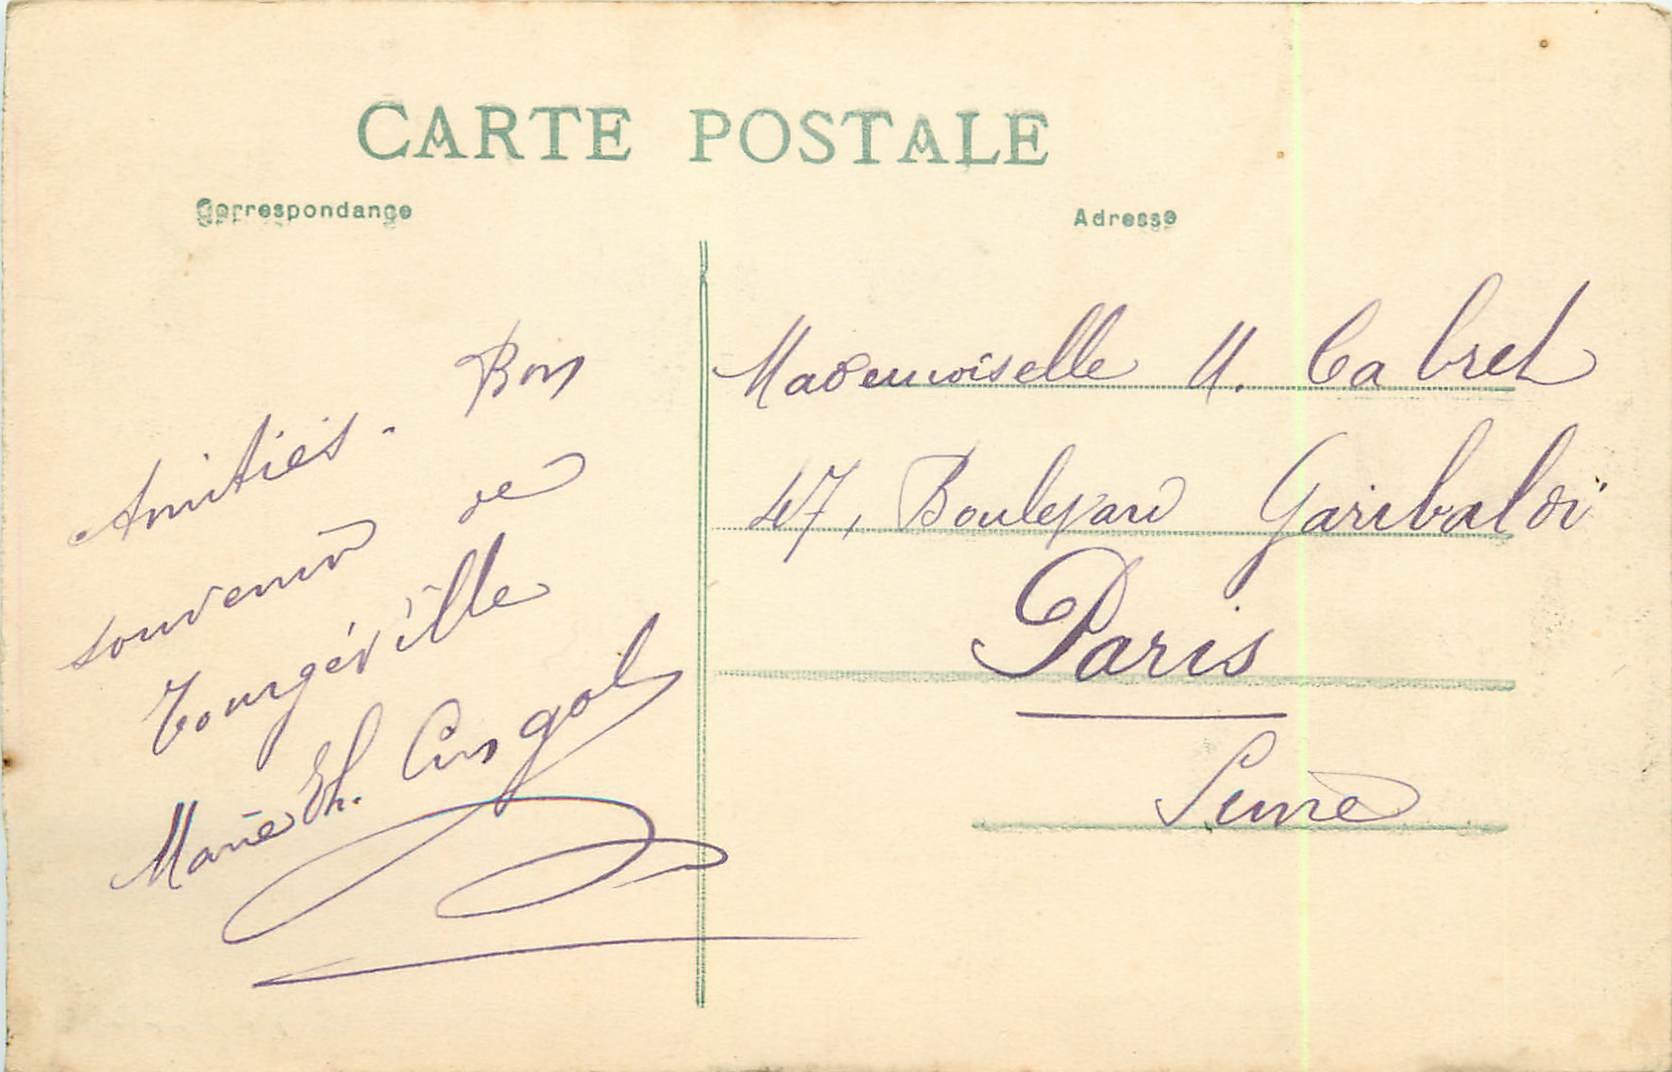 CARTE POSTALE
Correspondance
Adresse
Amitiés - Bon
souvenir de
Tourgéville
Marie Th.
Mademoiselle M. Cabret
47, Boulevard Garibaldi
Paris
Seine